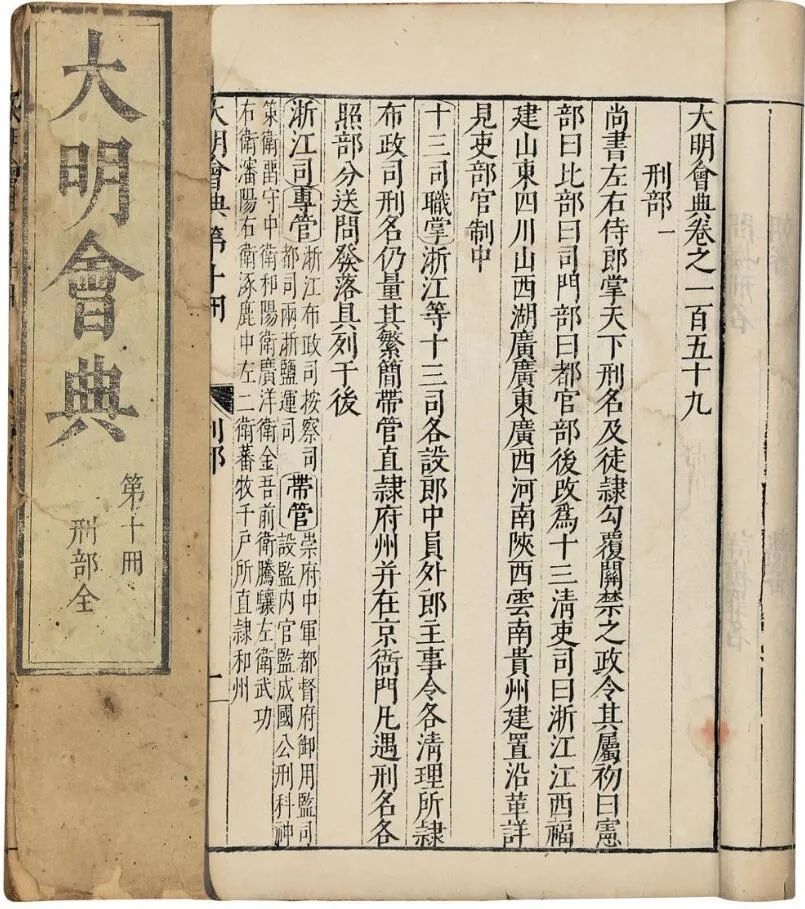 大明會典卷之一百五十九
刑部一
尚書左右侍郎掌天下刑名及徒隸勾覆關禁之政令其屬初曰憲
部曰比部曰司門部曰都官部後改爲十三清吏司曰浙江江西福
建山東四川山西湖廣廣東廣西河南陝西雲南貴州建置沿革詳
見吏部官制中
十三司職掌浙江等十三司各設郎中員外郎主事令各清理所隸
布政司刑名仍量其繁簡帶管直隸府州并在京衙門凡遇刑名各
照部分送問發落具列于後
浙江司專管
浙江布政司按察司
都司兩浙鹽運司
帶管
崇府中軍都督府御用監司
設監内官監成國公刑科神
策衛畱守中衛和陽衛廣洋衛金吾前衛騰驤左衛武功
右衛瀋陽右衛涿鹿中左二衛蕃牧千戶所直隸和州
大明會典第十冊
刑部
大明會典
第十冊
刑部全